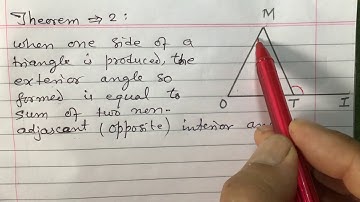 Theorem ⇒ 2:
M
when one side of a
triangle is produced, the
exterior angle so
formed is equal to
O T I
sum of two non-
adjascant (opposite) interior an